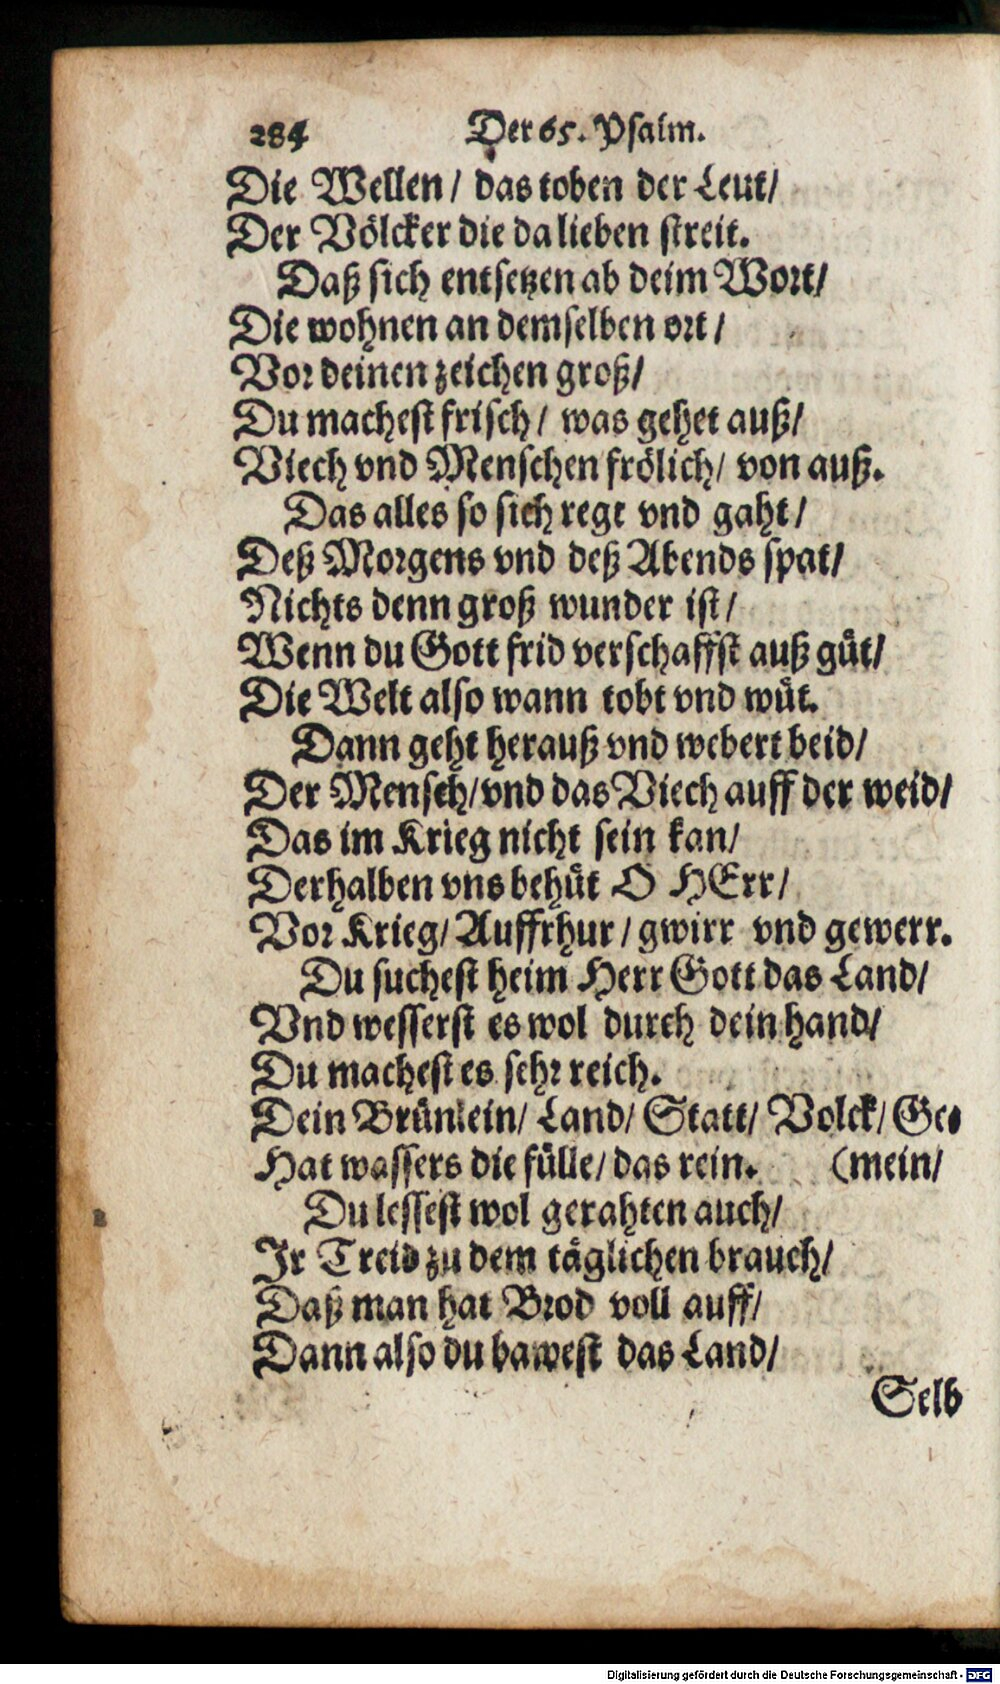 284 Der 65. Psalm.
Die Wellen / das toben der Leut /
Der Völcker die da lieben streit.
Daß sich entsetzen ab deim Wort /
Die wohnen an demselben ort /
Vor deinen zeichen groß /
Du machest frisch / was gehet auß /
Viech vnd Menschen frölich / von auß.
Das alles so sich regt vnd gaht /
Deß Morgens vnd deß Abends spat /
Nichts denn groß wunder ist /
Wenn du Gott frid verschaffst auß güt /
Die Welt also wann tobt vnd wüt.
Dann geht herauß vnd webert beid /
Der Mensch / vnd das Viech auff der weid /
Das im Krieg nicht sein kan /
Derhalben vns behüt O HErr /
Vor Krieg / Auffrhur / gwirr vnd gewerr.
Du suchest heim Herr Gott das Land /
Vnd wesserst es wol durch dein hand /
Du machest es sehr reich.
Dein Brünlein / Land / Statt / Volck / Ge-
Hat wassers die fülle / das rein. (mein /
Du lessest wol gerahten auch /
Ir Treid zu dem täglichen brauch /
Daß man hat Brod voll auff /
Dann also du bawest das Land /
Selb
Digitalisierung gefördert durch die Deutsche Forschungsgemeinschaft - DFG